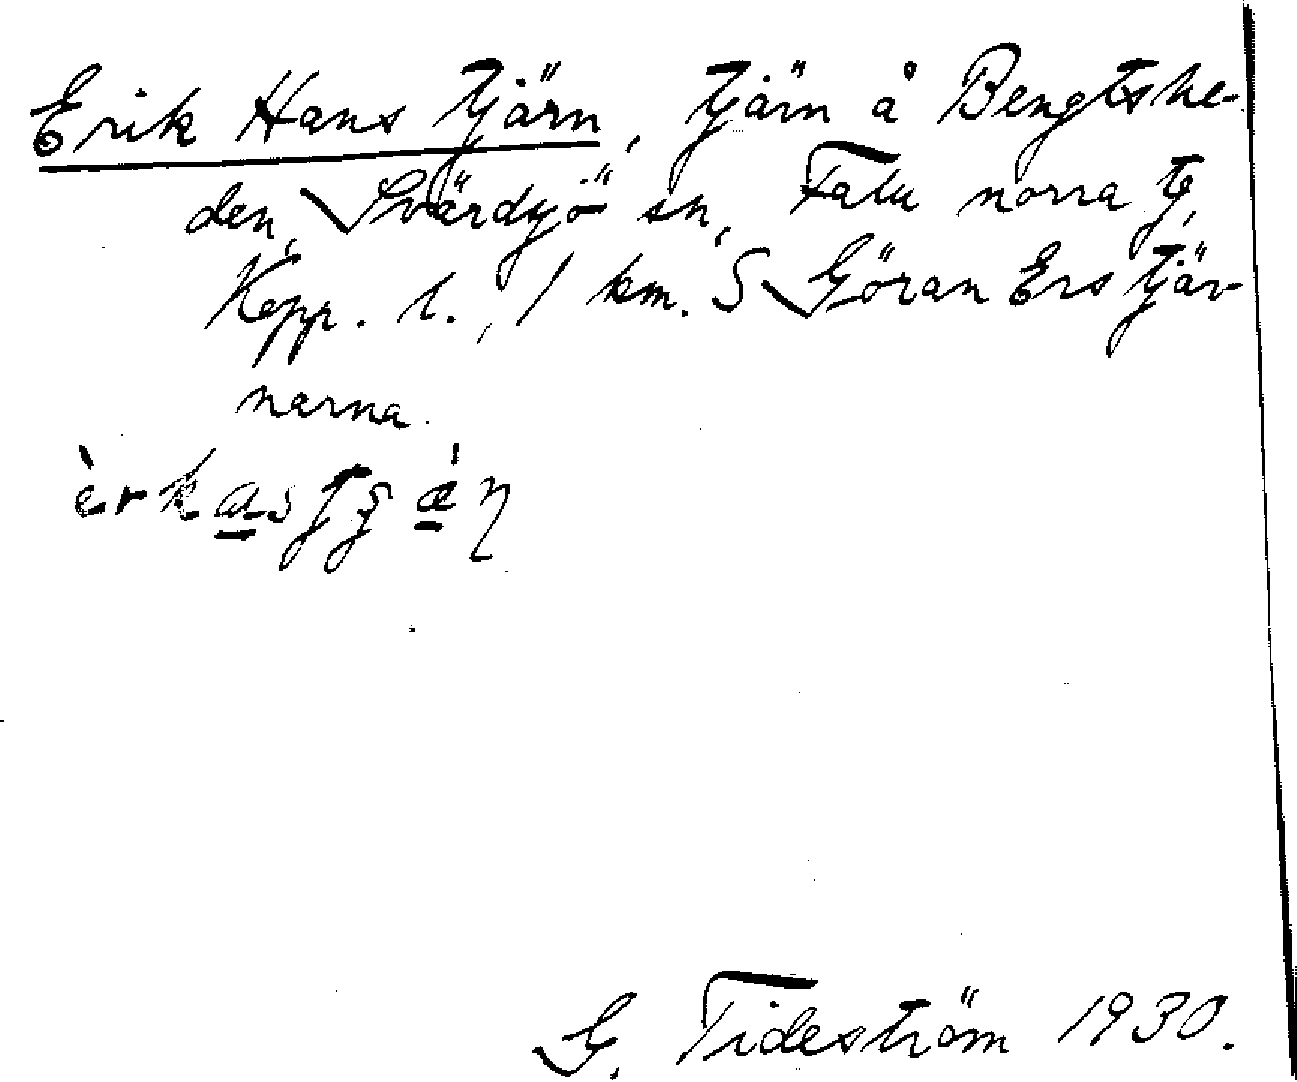 Erik Hans tjärn, tjärn å Bengtshe-
den, Svärdsjö sn, Falu norra tg,
Kopp. l., 1 km. S Göran Ers tjär-
narna.
G. Tideström 1930.